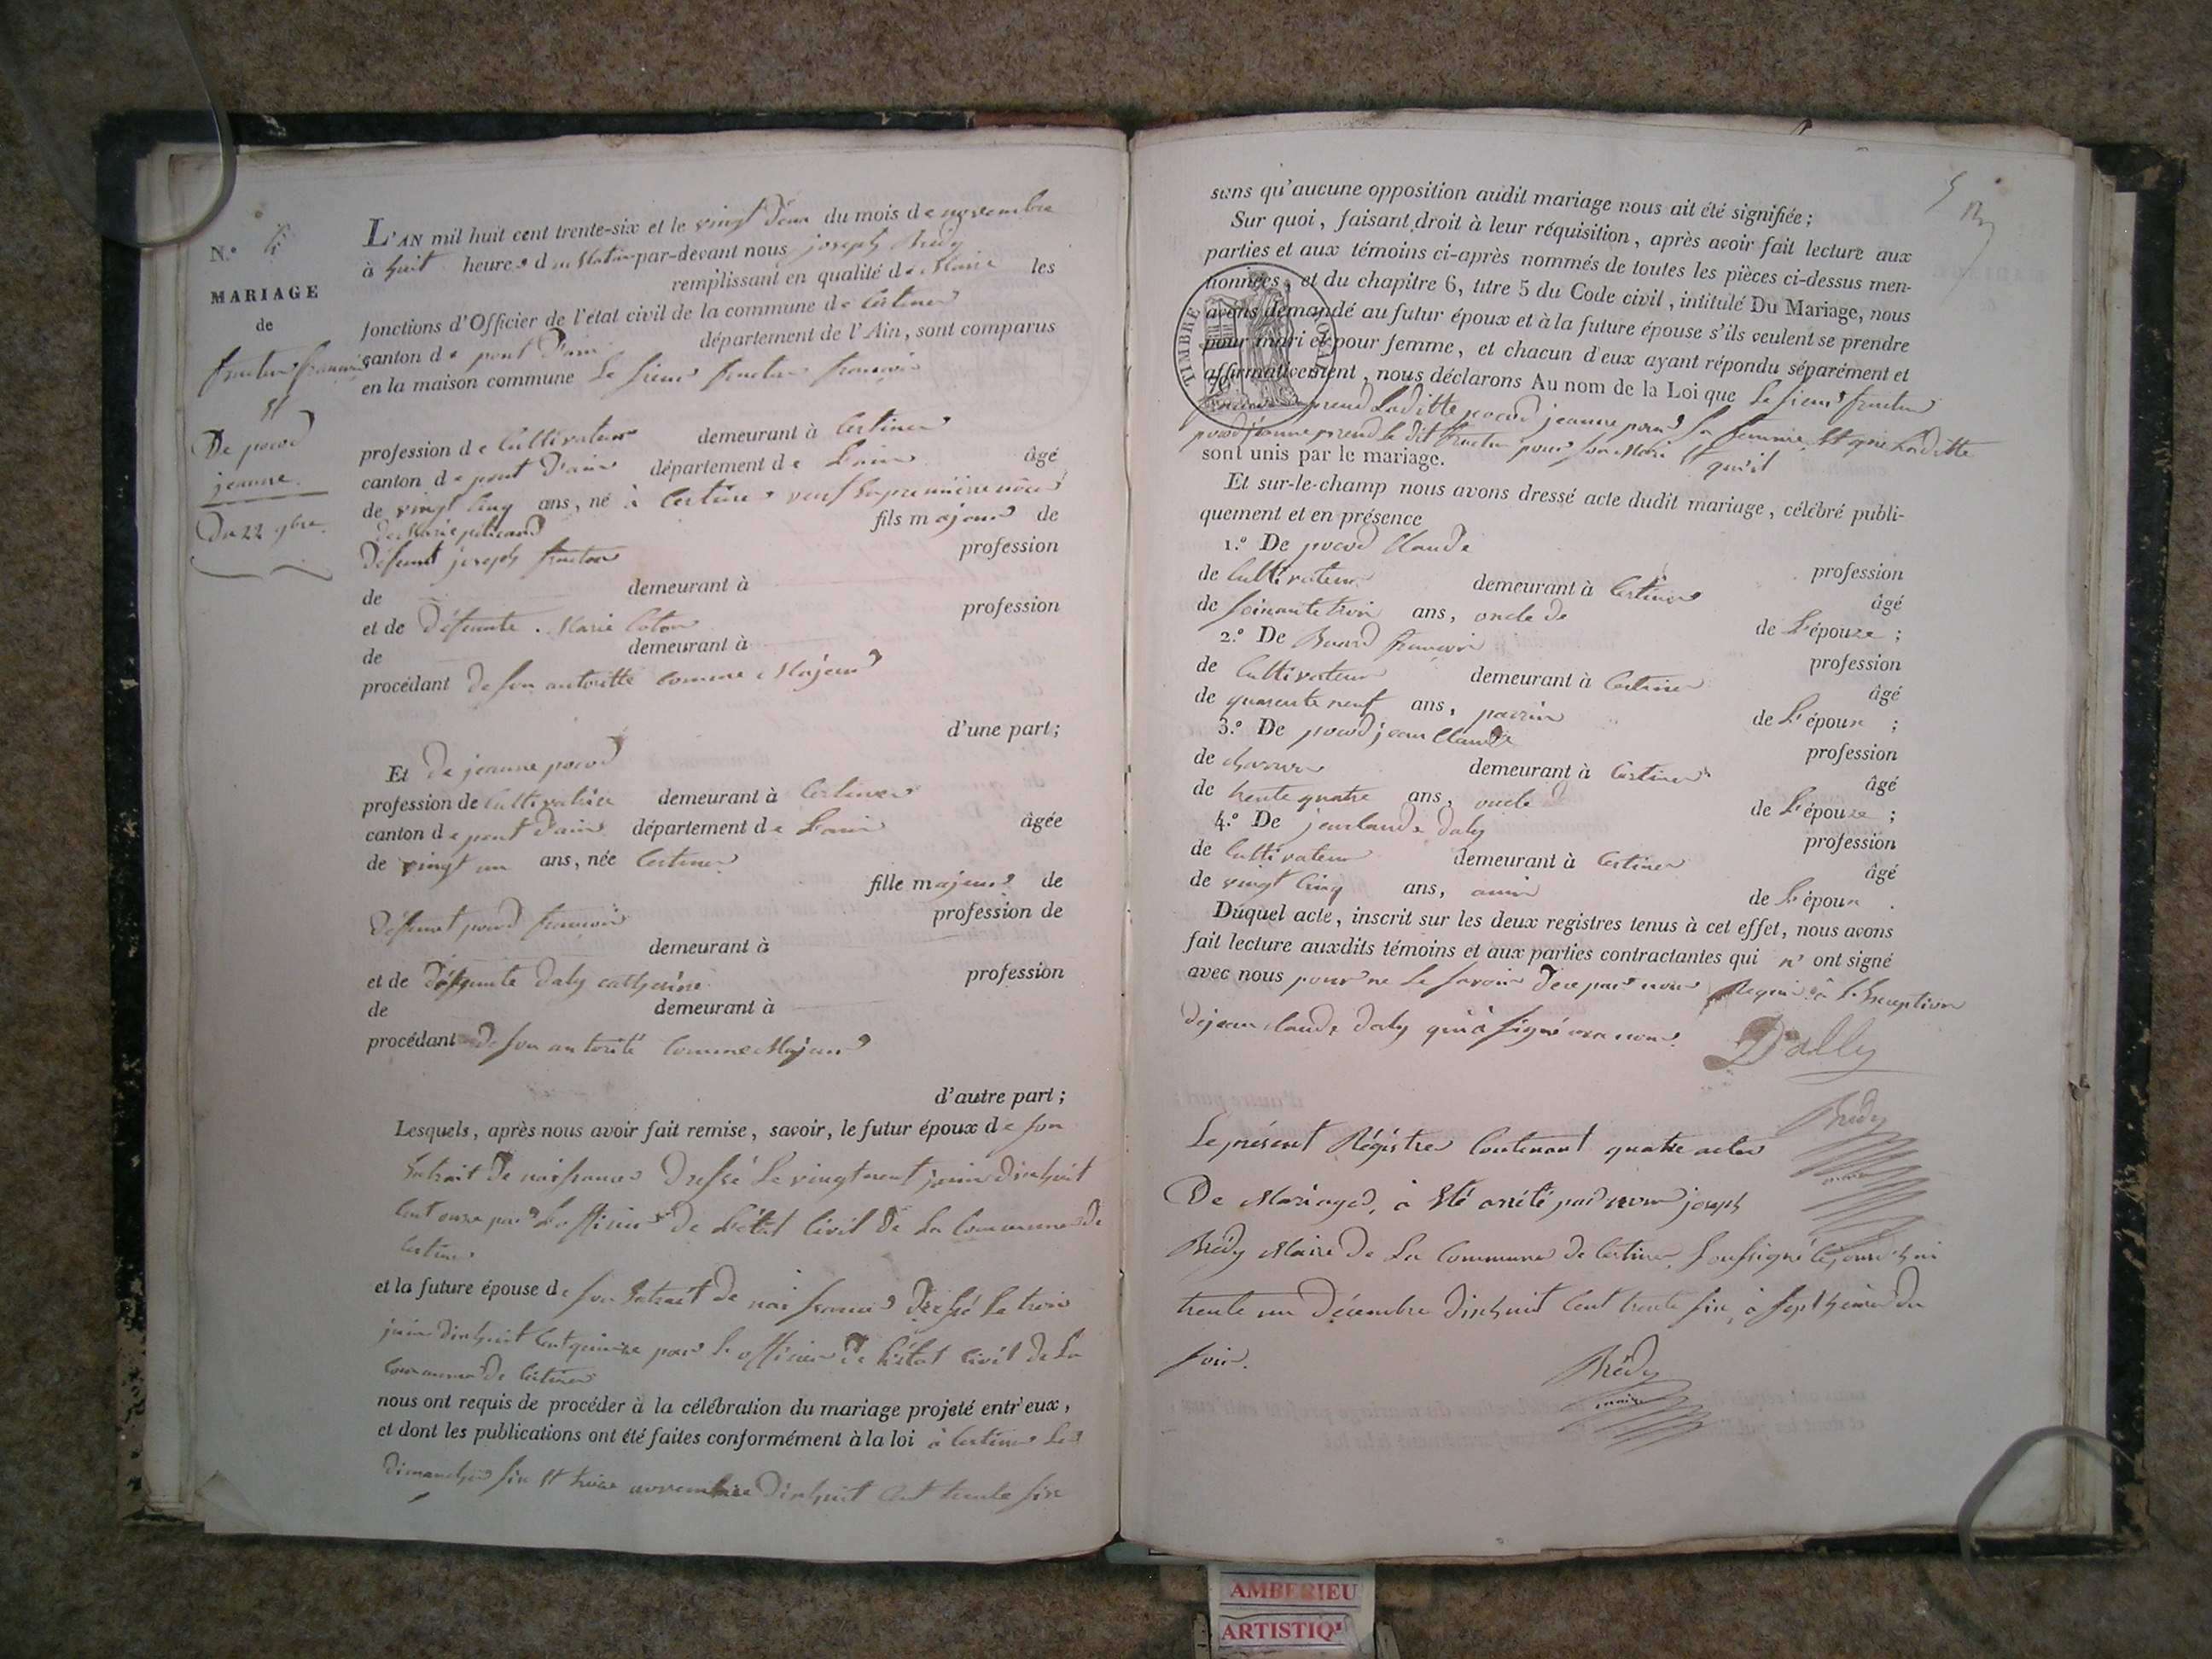 N.° 4
MARIAGE
de
fructus françois
et
De pocod
jeanne.
Du 22 9bre.
L'AN mil huit cent trente-six et le vingt deux du mois de novembre
à huit heures du Matin par-devant nous joseph Brédy
remplissant en qualité de Maire les
fonctions d'Officier de l'état civil de la commune de Certines
canton de pont D'ain département de l'Ain, sont comparus
en la maison commune Le sieur françois
profession de Cultivateur demeurant à Certines
canton de pont D'ain département de L'ain âgé
de vingt Cinq ans, né à Certines veuf
de Marie
fils majeur de
Défunt joseph profession
de demeurant à
et de Défunte Marie profession
de demeurant à
procédant de son autoritté Comme Majeur
d'une part;
Et De jeanne pocod
profession de Cultivatrice demeurant à Certines
canton de pont D'ain département de L'ain âgée
de vingt un ans, née Certines
fille majeure de
Défunt pocod françois profession de
demeurant à
et de Défunte Daly catherine profession
de demeurant à
procédant de son autorité Comme Majeur
d'autre part;
Lesquels, après nous avoir fait remise, savoir, le futur époux de son
Extrait de naissance Dressé Le vingt neuf juin Dixhuit
Cent onze par L'officier de L'état Civil De La Commune De
Certines
et la future épouse de son Extrait de naissance Dressé Le trois
juin Dixhuit Cent quinze par L'officier De L'état Civil De La
Commune De Certines
nous ont requis de procéder à la célébration du mariage projeté entr'eux,
et dont les publications ont été faites conformément à la loi à Certines Les
Dimanches six et treize novembre Dixhuit Cent trente six
sans qu'aucune opposition audit mariage nous ait été signifiée;
Sur quoi, faisant droit à leur réquisition, après avoir fait lecture aux
parties et aux témoins ci-après nommés de toutes les pièces ci-dessus men-
tionnées, et du chapitre 6, titre 5 du Code civil, intitulé Du Mariage, nous
avons demandé au futur époux et à la future épouse s'ils veulent se prendre
pour mari et pour femme, et chacun d'eux ayant répondu séparément et
affirmativement, nous déclarons Au nom de la Loi que Le sieur
françois prend Laditte pocod jeanne pour sa femme Et que Laditte
pocod jeanne prend le dit pour son Mari Et qu'il
sont unis par le mariage.
TIMBRE ROYAL
Et sur-le-champ nous avons dressé acte dudit mariage, célébré publi-
quement et en présence
1.° De pocod Claude profession
de Cultivateur demeurant à Certines âgé
de soixante trois ans, oncle de de L'épouze;
2.° De Buard françois profession
de Cultivateur demeurant à Certines âgé
de quarente neuf ans, parrin de L'époux;
3.° De pocod jean Claude profession
de charron demeurant à Certines âgé
de trente quatre ans, oncle de L'épouze;
4.° De jean Claude Daly profession
de Cultivateur demeurant à Certines âgé
de vingt Cinq ans, amis de L'époux.
Duquel acte, inscrit sur les deux registres tenus à cet effet, nous avons
fait lecture auxdits témoins et aux parties contractantes qui n'ont signé
avec nous pour ne Le savoir De ce par nous Requis à L'Exception
de jean Claude Daly qui à signé avec nous.
Dally
Brédy
maire
Le présent Régistre Contenant quatre actes
De Mariages, à Eté arrété par nous joseph
Brédy Maire De La Commune De Certines soussigné
trente un Décembre Dixhuit Cent trente six, à sept heures Du
soir.
Brédy
maire
AMBERIEU
ARTISTIQ'